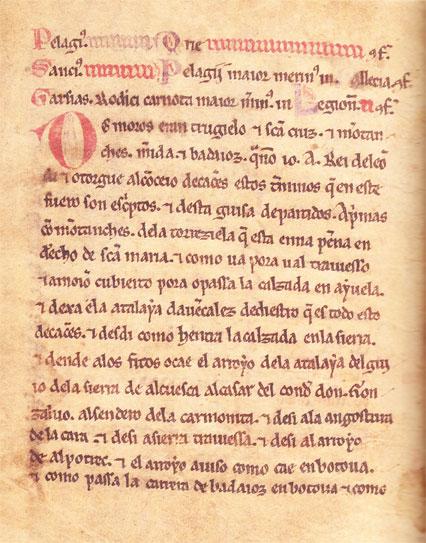 Pelagiꝰ Orie ɔf.
Sanciꝰ Pelagii maior merinꝰ in Gallecia ɔf.
Garsias Rodici carnota maior m̃inꝰ in Legion̄. ɔf.
Os moros eran trugielo ⁊ sc̄a cruz. ⁊ mōtan
ches. ⁊ badaioz. q̄no yo. A. Rei
⁊ otorgue al cōceio de caćes estos t̃minos q̄ en este
fuero son esc̃ptos. ⁊ desta guisa departidos. Ap̃mas
cō mōtanches. dela torreziela q̄ esta enna pēna en
d̃echo de sc̄a maria. ⁊ como ua pora ual trauiesso
⁊ arroio cubierto pora o passa la calzada en ayuela.
⁊ dexa ela atalaya de diestro q̄ es todo esto
de caćes. ⁊ desdi como la calzada en la sierra.
⁊ dende alos fitos o cae el arroyo dela atalaya del
io dela sierra de alcuesca al casar del cond don
zaluo. al sendero dela carmonita. ⁊ desi ala angostura
de la cara ⁊ desi a sierra trauiessa. ⁊ desi al arroyo
de alpotrec. ⁊ el arroyo aiuso como cae en botoua.
⁊ como passa la carrera de badaioz en botoua ⁊ como